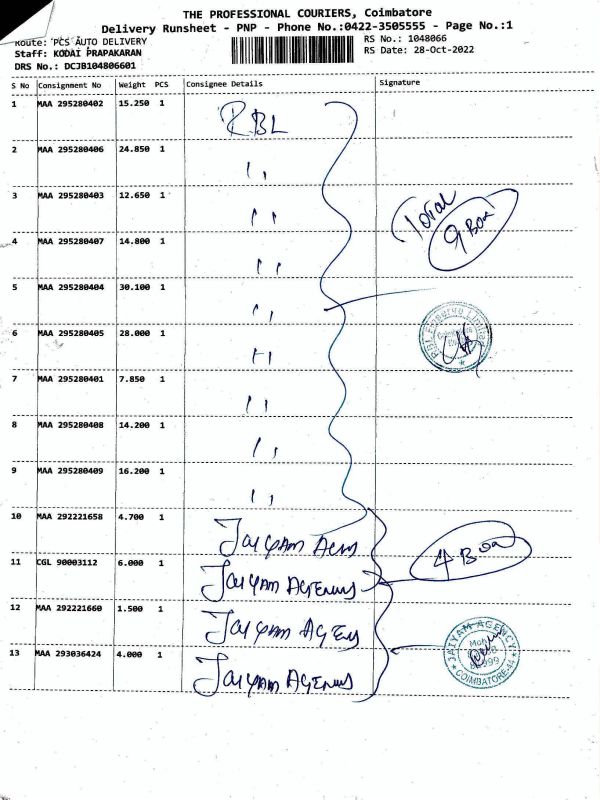 THE PROFESSIONAL COURIERS, Coimbatore
Delivery Runsheet - PNP - Phone No.:0422-3505555 - Page No.:1
Route: PCS AUTO DELIVERY
RS No.: 1048066
Staff: KODAI PRAPAKARAN
RS Date: 28-Oct-2022
DRS No.: DCJB104806601
S No Consignment No Weight PCS Consignee Details Signature
1 MAA 295280402 15.250 1 RBL
2 MAA 295280406 24.850 1 ,,
3 MAA 295280403 12.650 1 ,,
Total
9 Box
4 MAA 295280407 14.800 1 ,,
5 MAA 295280404 30.100 1 ,,
6 MAA 295280405 28.000 1 ,,
7 MAA 295280401 7.850 1 ,,
8 MAA 295280408 14.200 1 ,,
9 MAA 295280409 16.200 1 ,,
10 MAA 292221658 4.700 1 JAIYAM
4 Box
11 CGL 90003112 6.000 1 JAIYAM AGENCIES
12 MAA 292221660 1.500 1 JAIYAM
13 MAA 293036424 4.000 1 JAIYAM AGENCIES
JAIYAM AGENCY
COIMBATORE-44